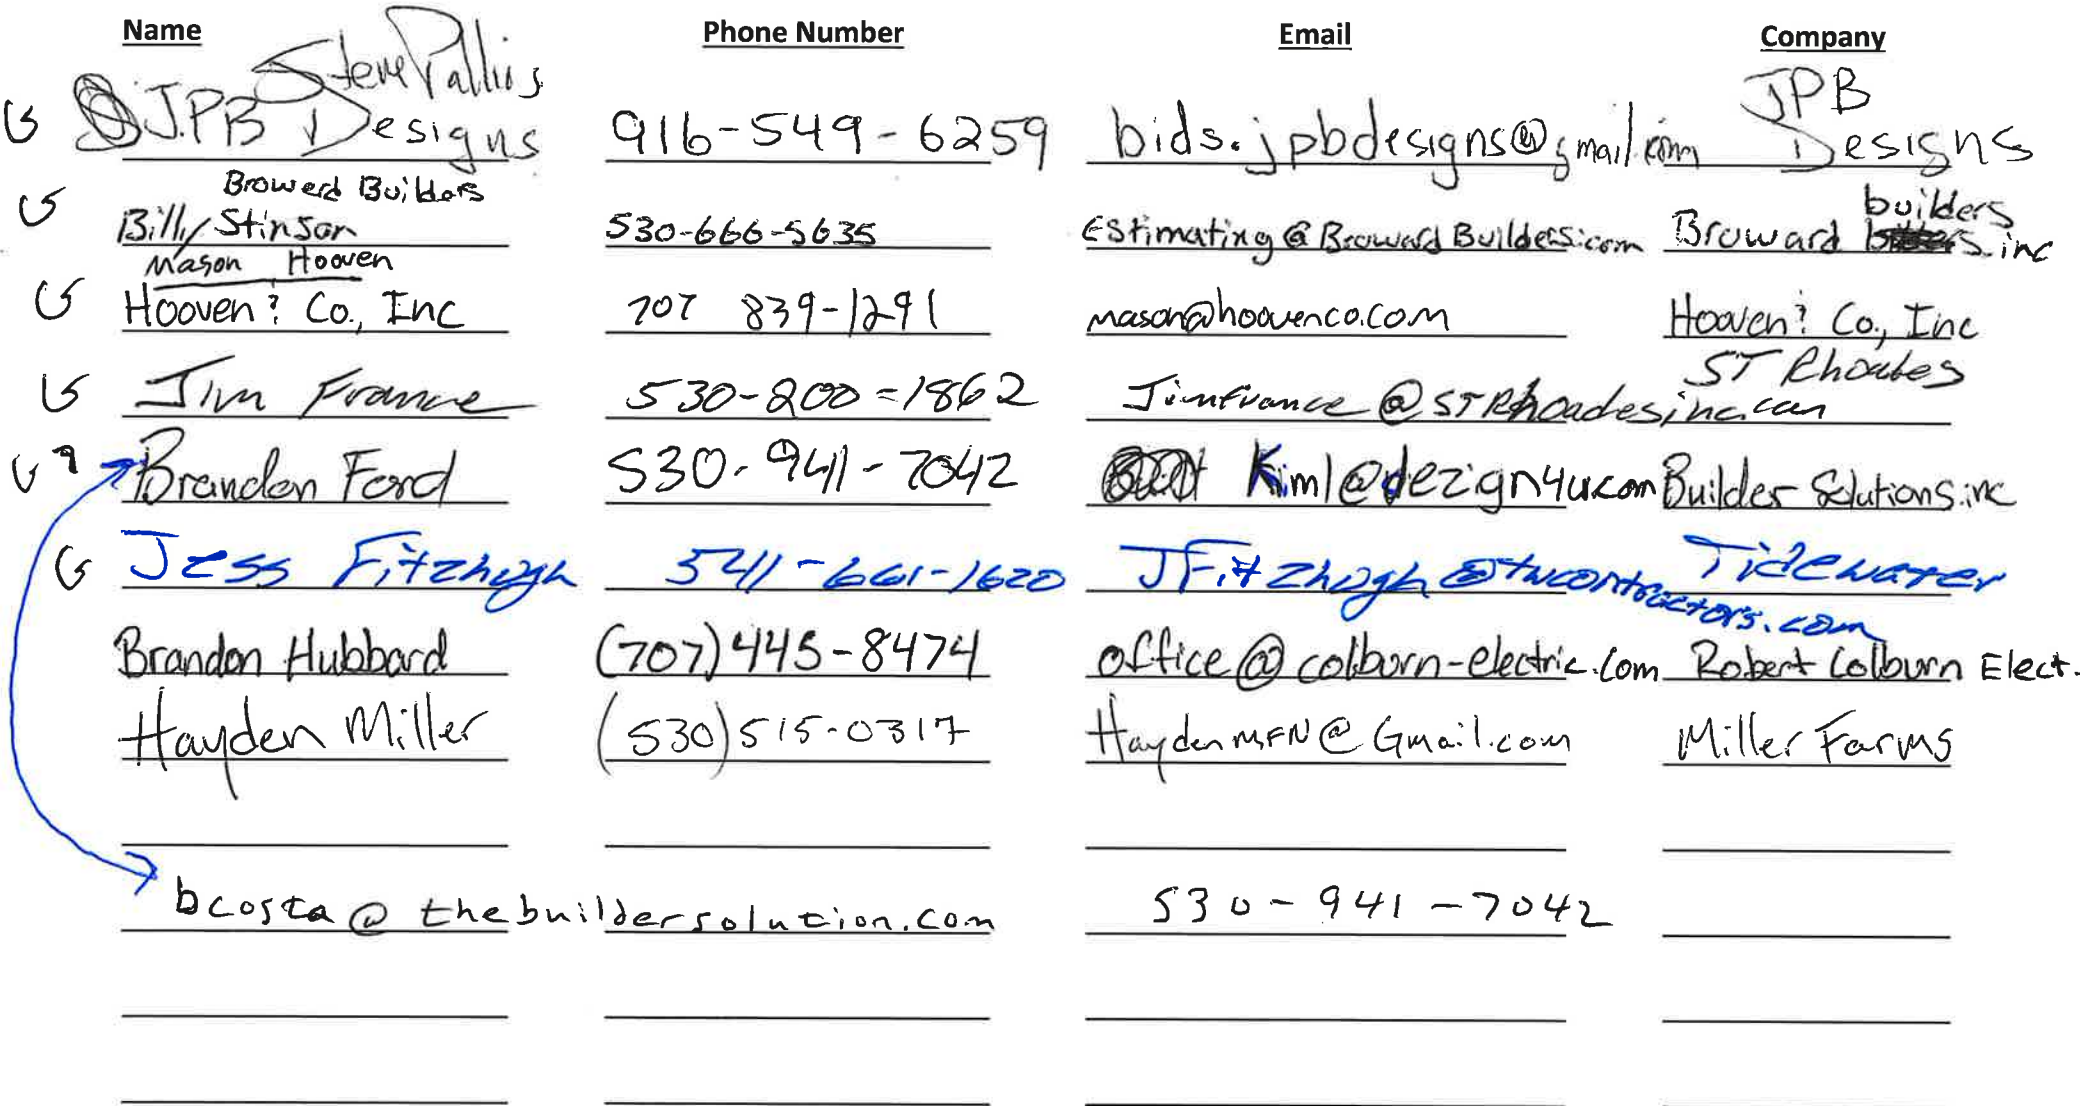 Name Phone Number Email Company
Steve Pallios
G JPB Designs 916-549-6259 bids.jpbdesigns@gmail.com JPB Designs
Broward Builders
G Billy Stinson 530-666-5635 Estimating@BrowardBuilders.com Broward builders inc
Mason Hooven
G Hooven ? Co., Inc 707 839-1291 mason@hoovenco.com Hooven ? Co., Inc
G Jim France 530-200-1862 Jimfrance@STRhoadesinc.com ST Rhoades
G ? Brandon Ford 530-941-7042 Kiml@dezign4u.com Builder Solutions.inc
G Jess Fitzhugh 541-661-1620 JFitzhugh@twcontractors.com Tidewater
Brandon Hubbard (707) 445-8474 office@colburn-electric.com Robert Colburn Elect.
Hayden Miller (530) 515-0317 HaydenMFN@Gmail.com Miller Farms
bcosta@thebuildersolution.com 530-941-7042